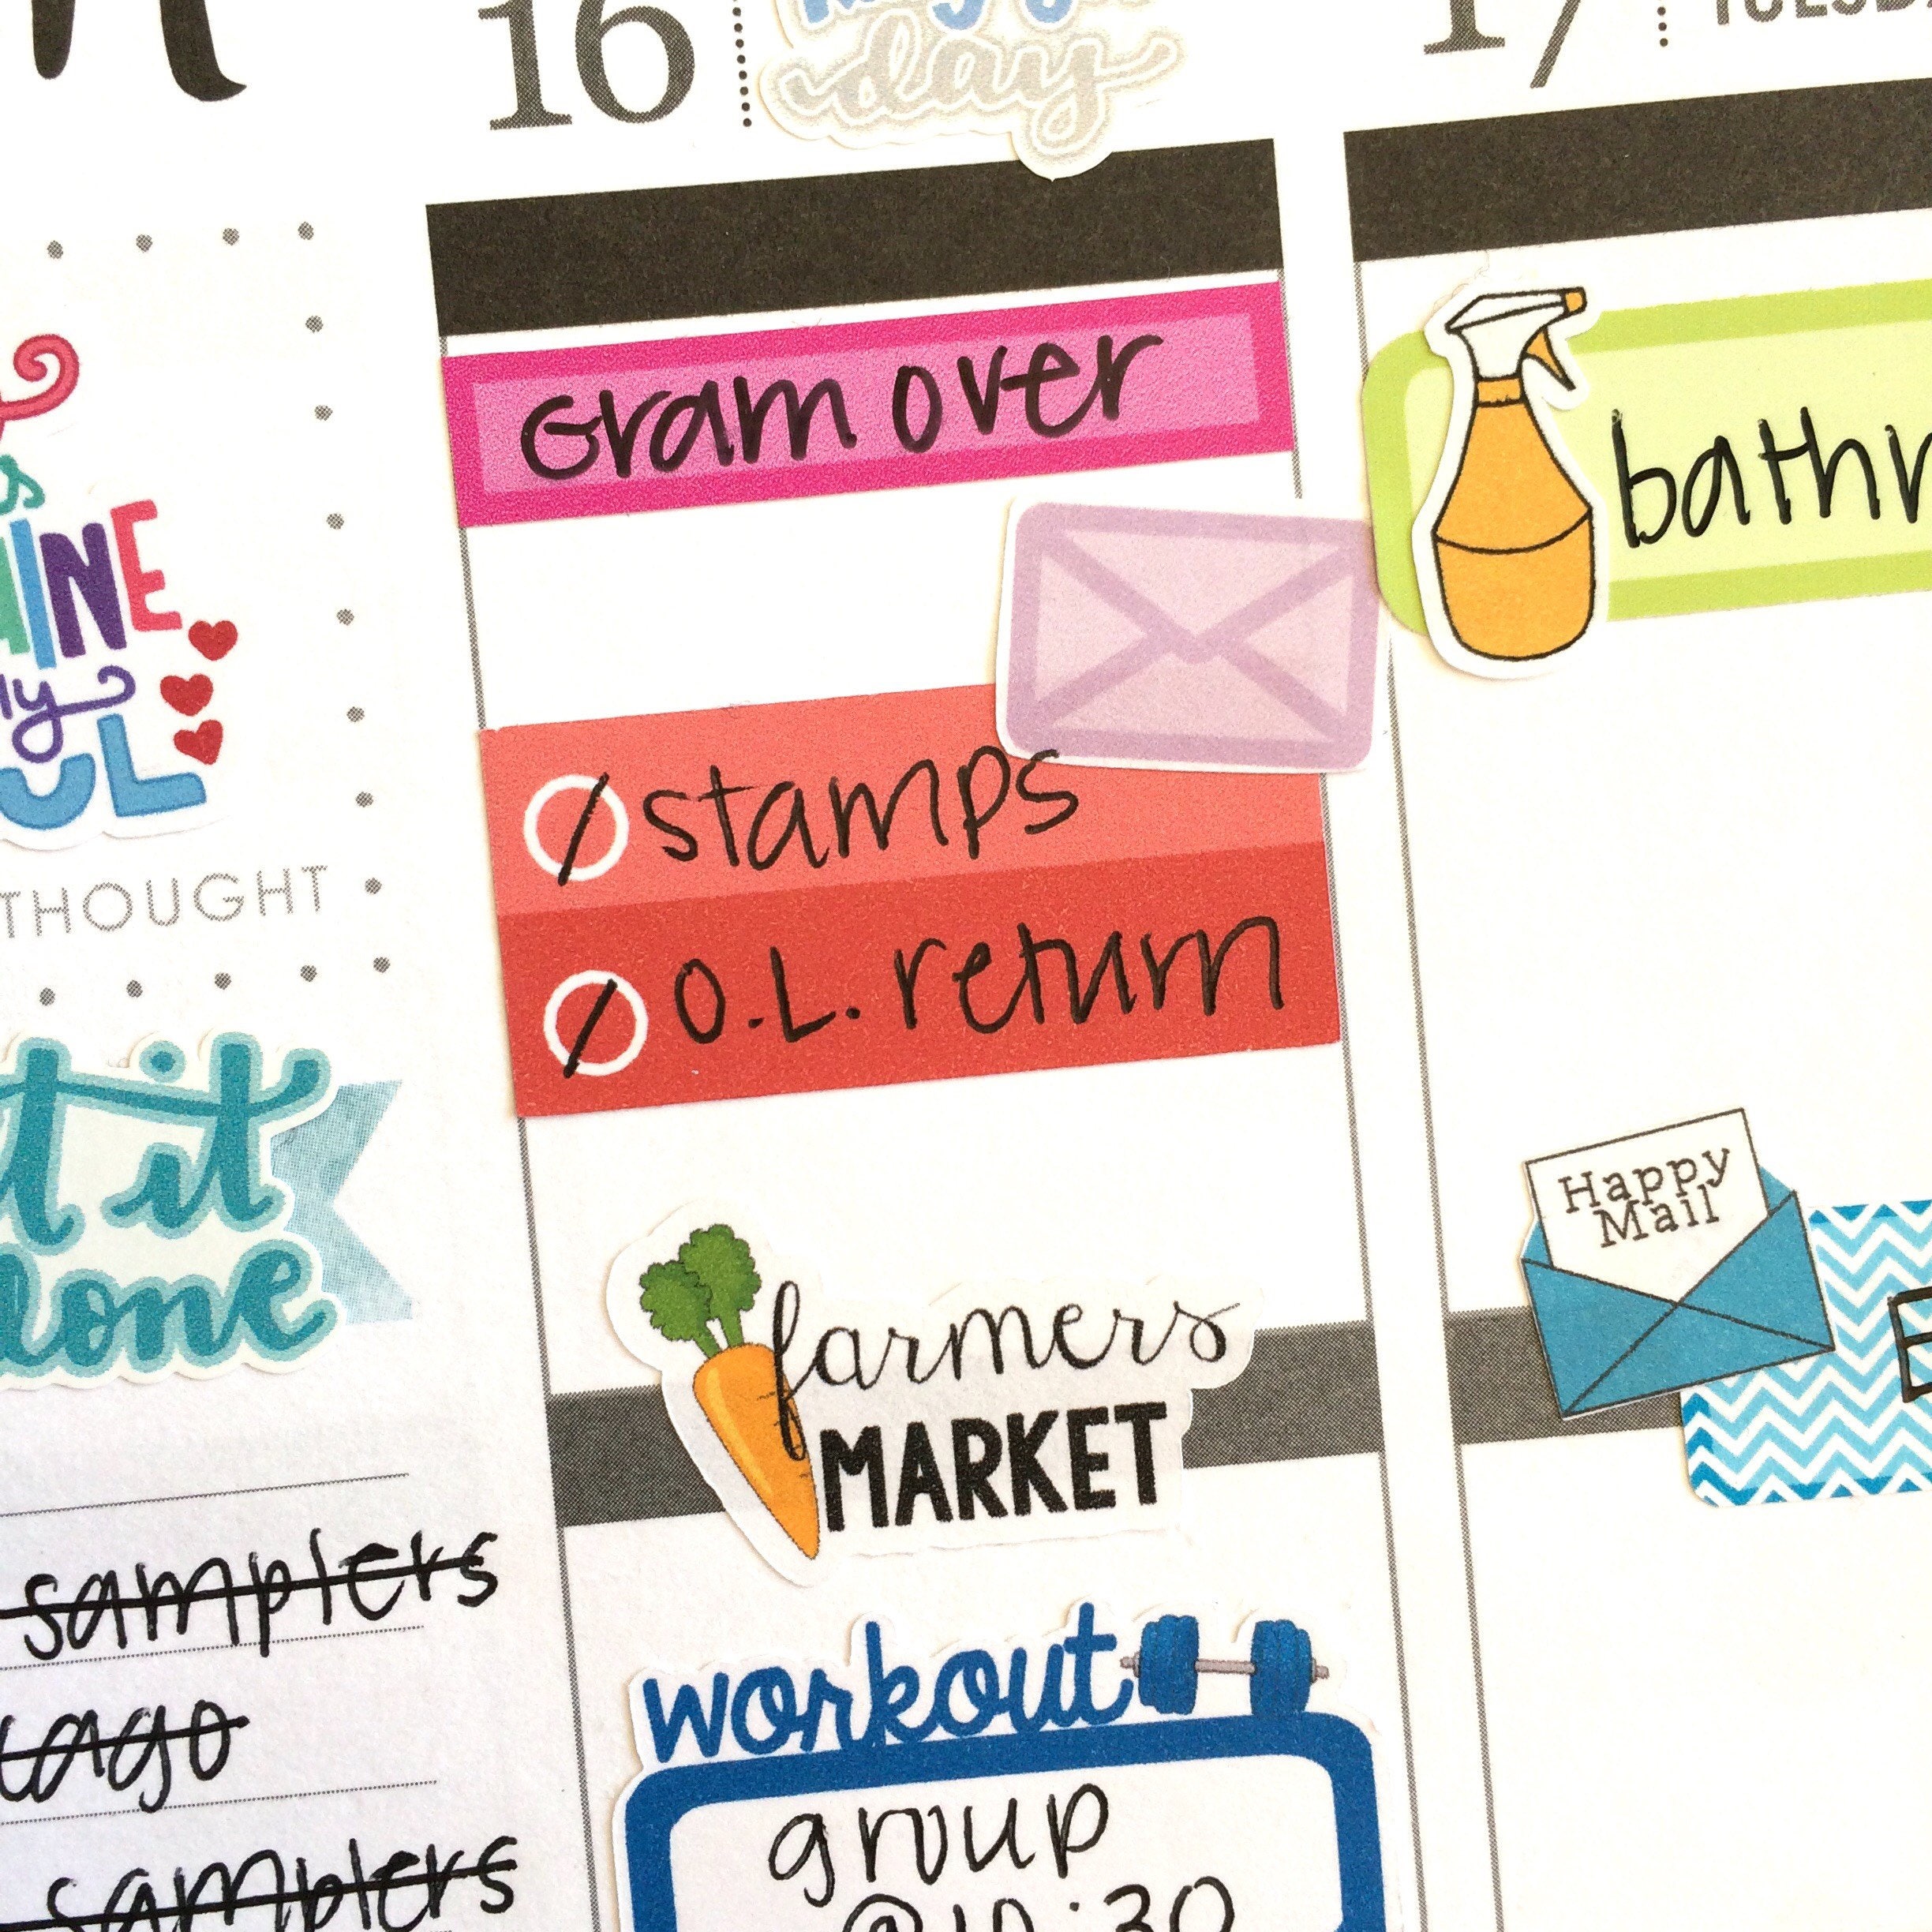 16
day
17
TUESD
Gram over
bathr
stamps
O.L. return
THOUGHT
it
done
Happy
Mail
farmers
MARKET
samplers
workout
group
@ 10:30
samplers